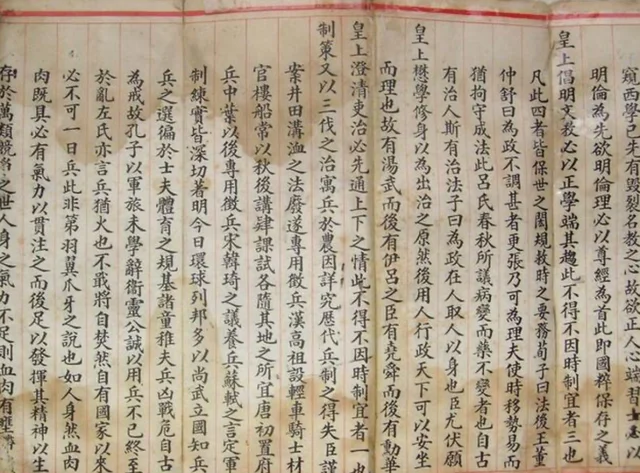 窺西學已先有毀裂名教之心故欲正人心端
明倫為先欲明倫理必以尊經為首此即國粹保存之義
皇上倡明文教必以正學端其趨此不得不因時制宜者三也
凡此四者皆保世之閎規救時之要務荀子曰法後王董
仲舒曰為政不調甚者更張乃可為理夫使時移勢易而
猶拘守成法此呂氏春秋所議病變而藥不變者也自古
有治人斯有治法子曰為政在人取人以身也臣尤伏願
皇上懋學修身以為出治之原然後用人行政天下可以安坐
而理也故有湯武而後有伊呂之臣有堯舜而後有勳華
皇上澄清吏治必先通上下之情此不得不因時制宜者一也
制策又以三代之治寓兵於農因詳究歷代兵制之得失臣謹
案井田溝洫之法廢遂專用徵兵漢高祖設輕車騎士材
官樓船常以秋後講肄課試各隨其地之所宜唐初置府
兵中葉以後專用徵兵宋韓琦之議養兵蘇軾之言定軍
制練實皆深切著明今日環球列邦多以尚武立國知兵
兵之選徧於士夫體育之規基諸童稚夫兵凶戰危自古
為戒故孔子以軍旅未學辭衛靈公誠以用兵不已終至
於亂左氏亦言兵猶火也不戢將自焚然自有國家以來
必不可一日兵此非第羽翼爪牙之說也如人身然血肉
肉既具必有氣力以貫注之而後足以發揮其精神以生
存於萬類競爭之世人身之氣力不足則血肉有壅